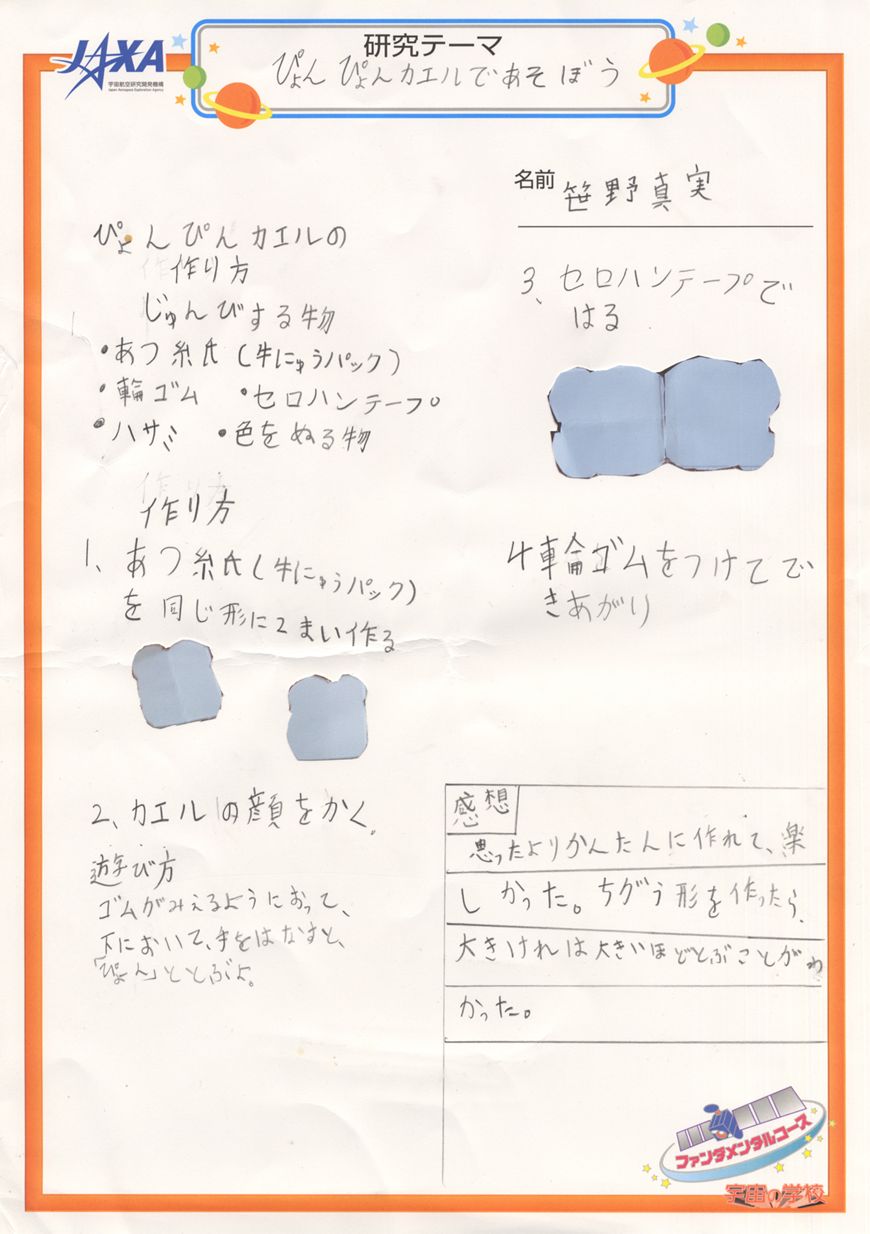 JAXA
宇宙航空研究開発機構
Japan Aerospace Exploration Agency
研究テーマ
ぴょんぴょんカエルであそぼう
名前 笹野真実
ぴょんぴんカエルの
作り方
じゅんびする物
・あつ紙(牛にゅうパック)
・輪ゴム ・セロハンテープ
・ハサミ ・色をぬる物
作り方
1、あつ紙(牛にゅうパック)
を同じ形に2まい作る
2、カエルの顔をかく。
遊び方
ゴムがみえるようにおって、
下において、手をはなすと、
「ぴょん」ととぶよ。
3、セロハンテープで
はる
4輪ゴムをつけてで
きあがり
感想
思ったよりかんたんに作れて、楽
しかった。ちがう形を作ったら、
大きければ大きいほどとぶことがわ
かった。
ファンダメンタルコース
宇宙の学校